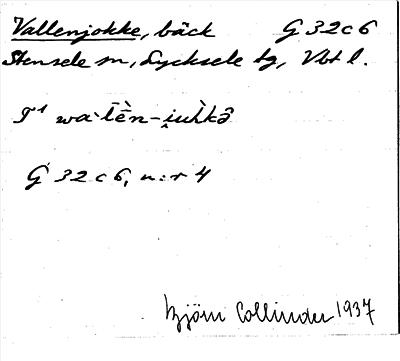 Vallenjokke, bäck G 32 c 6
Stensele sn, Lycksele tg, Vbt l.
G 32 c 6, n:r 4
Björn Collinder 1937